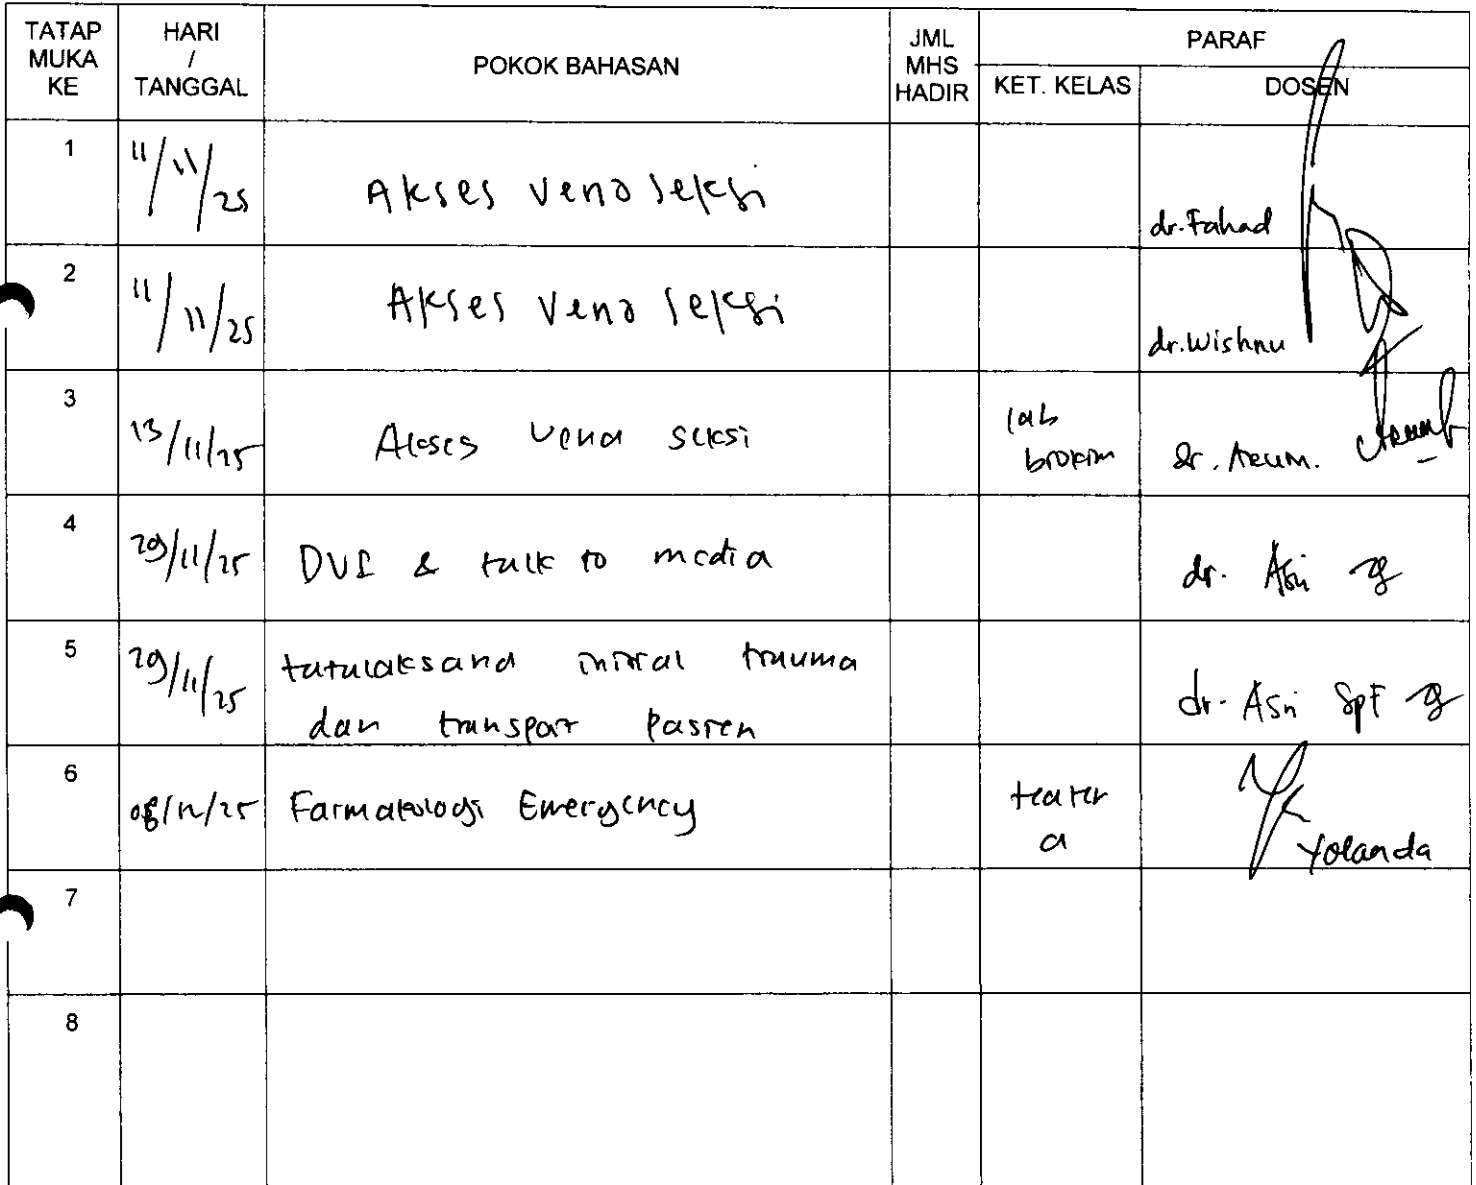 TATAP MUKA KE
HARI / TANGGAL
POKOK BAHASAN
JML MHS HADIR
PARAF
KET. KELAS
DOSEN
1
11/11/25
Akses vena seksi
dr. Fahad
2
11/11/25
Akses vena seksi
dr. Wishnu
3
13/11/25
Akses vena seksi
lab
biokim
dr. Arum.
4
29/11/25
DVI & talk to media
dr. Asri
5
29/11/25
tatalaksana inisial trauma
dan transpor pasien
dr. Asri SpF
6
08/12/25
Farmakologi Emergency
teater
a
Yolanda
7
8